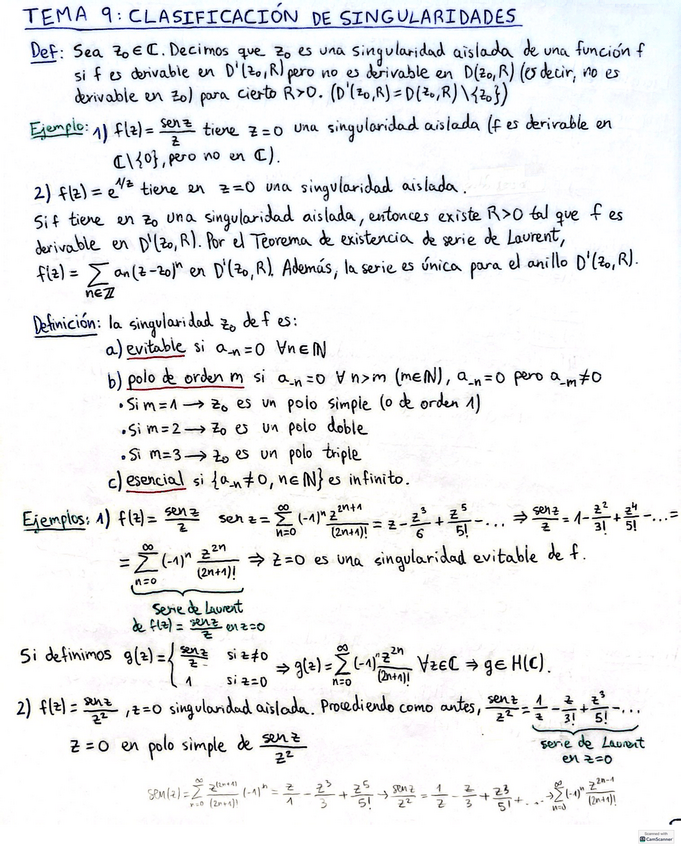 TEMA 9: CLASIFICACIÓN DE SINGULARIDADES
Def: Sea z₀ ∈ ℂ. Decimos que z₀ es una singularidad aislada de una función f
si f es derivable en D'(z₀,R) pero no es derivable en D(z₀,R) (es decir, no es
derivable en z₀) para cierto R>0. (D'(z₀,R) = D(z₀,R) \ {z₀})
Ejemplo: 1) f(z) = sen z / z tiene z=0 una singularidad aislada (f es derivable en
ℂ\{0}, pero no en ℂ).
2) f(z) = e^{1/z} tiene en z=0 una singularidad aislada.
Si f tiene en z₀ una singularidad aislada, entonces existe R>0 tal que f es
derivable en D'(z₀,R). Por el Teorema de existencia de serie de Laurent,
f(z) = ∑_{n∈ℤ} an(z-z₀)ⁿ en D'(z₀,R). Además, la serie es única para el anillo D'(z₀,R).
Definición: la singularidad z₀ de f es:
a) evitable si a_{-n}=0 ∀n∈ℕ
b) polo de orden m si a_{-n}=0 ∀ n>m (m∈ℕ), a_{-n}=0 pero a_{-m}≠0
• Si m=1 → z₀ es un polo simple (o de orden 1)
• Si m=2 → z₀ es un polo doble
• Si m=3 → z₀ es un polo triple
c) esencial si {a_{-n}≠0, n∈ℕ} es infinito.
Ejemplos: 1) f(z) = sen z / z sen z = ∑_{n=0}^{∞} (-1)ⁿ z^{2n+1}/(2n+1)! = z - z³/6 + z⁵/5! - ... ⇒ sen z / z = 1 - z²/3! + z⁴/5! - ... =
= ∑_{n=0}^{∞} (-1)ⁿ z^{2n}/(2n+1)! ⇒ z=0 es una singularidad evitable de f.
Serie de Laurent
de f(z) = sen z / z en z=0
Si definimos g(z) = { sen z / z si z≠0 ⇒ g(z) = ∑_{n=0}^{∞} (-1)ⁿ z^{2n}/(2n+1)! ∀z∈ℂ ⇒ g∈H(ℂ).
1 si z=0
2) f(z) = sen z / z², z=0 singularidad aislada. Procediendo como antes, sen z / z² = 1/z - z/3! + z³/5! - ...
z=0 en polo simple de sen z / z²
serie de Laurent
en z=0
sen(z) = ∑_{n=0}^{∞} z^{(2n+1)}/(2n+1)! (-1)ⁿ = z/1 - z³/3 + z⁵/5! → sen z / z² = 1/z - z/3 + z³/5! + ... → ∑_{n=0}^{∞} (-1)ⁿ z^{2n-1}/(2n+1)!
CamScanner